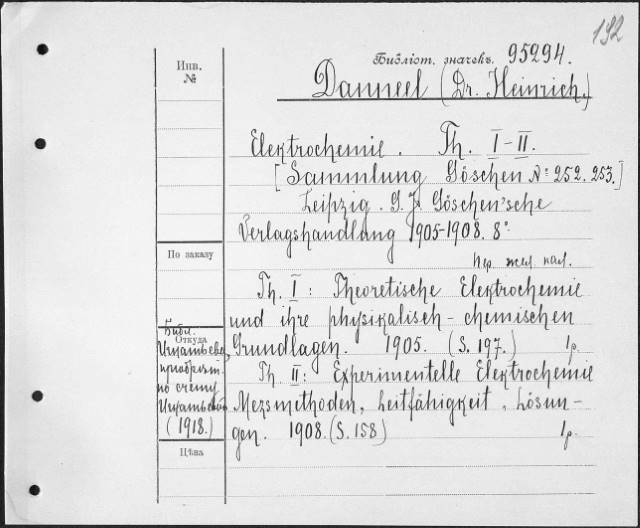 192
Инв.
№
Библіот. значекъ. 95294.
Danneel (Dr. Heinrich.)
Elektrochemie. Th. I-II.
[Sammlung Göschen №: 252. 253.]
Leipzig. G. J. Göschen'sche
Verlagshandlung 1905-1908. 8°
По заказу
пер. жел. кал.
Th. I: Theoretische Elektrochemie
und ihre physikalisch-chemischen
Grundlagen. 1905. (S. 197.) 1 р.
Th. II: Experimentelle Elektrochemie
Mezsmethoden, Leitfähigkeit, Lösun-
gen. 1908. (S. 158) 1 р.
Библ.
Откуда
Игнатьева,
приобрѣт.
по счету
(1918.)
Цѣна